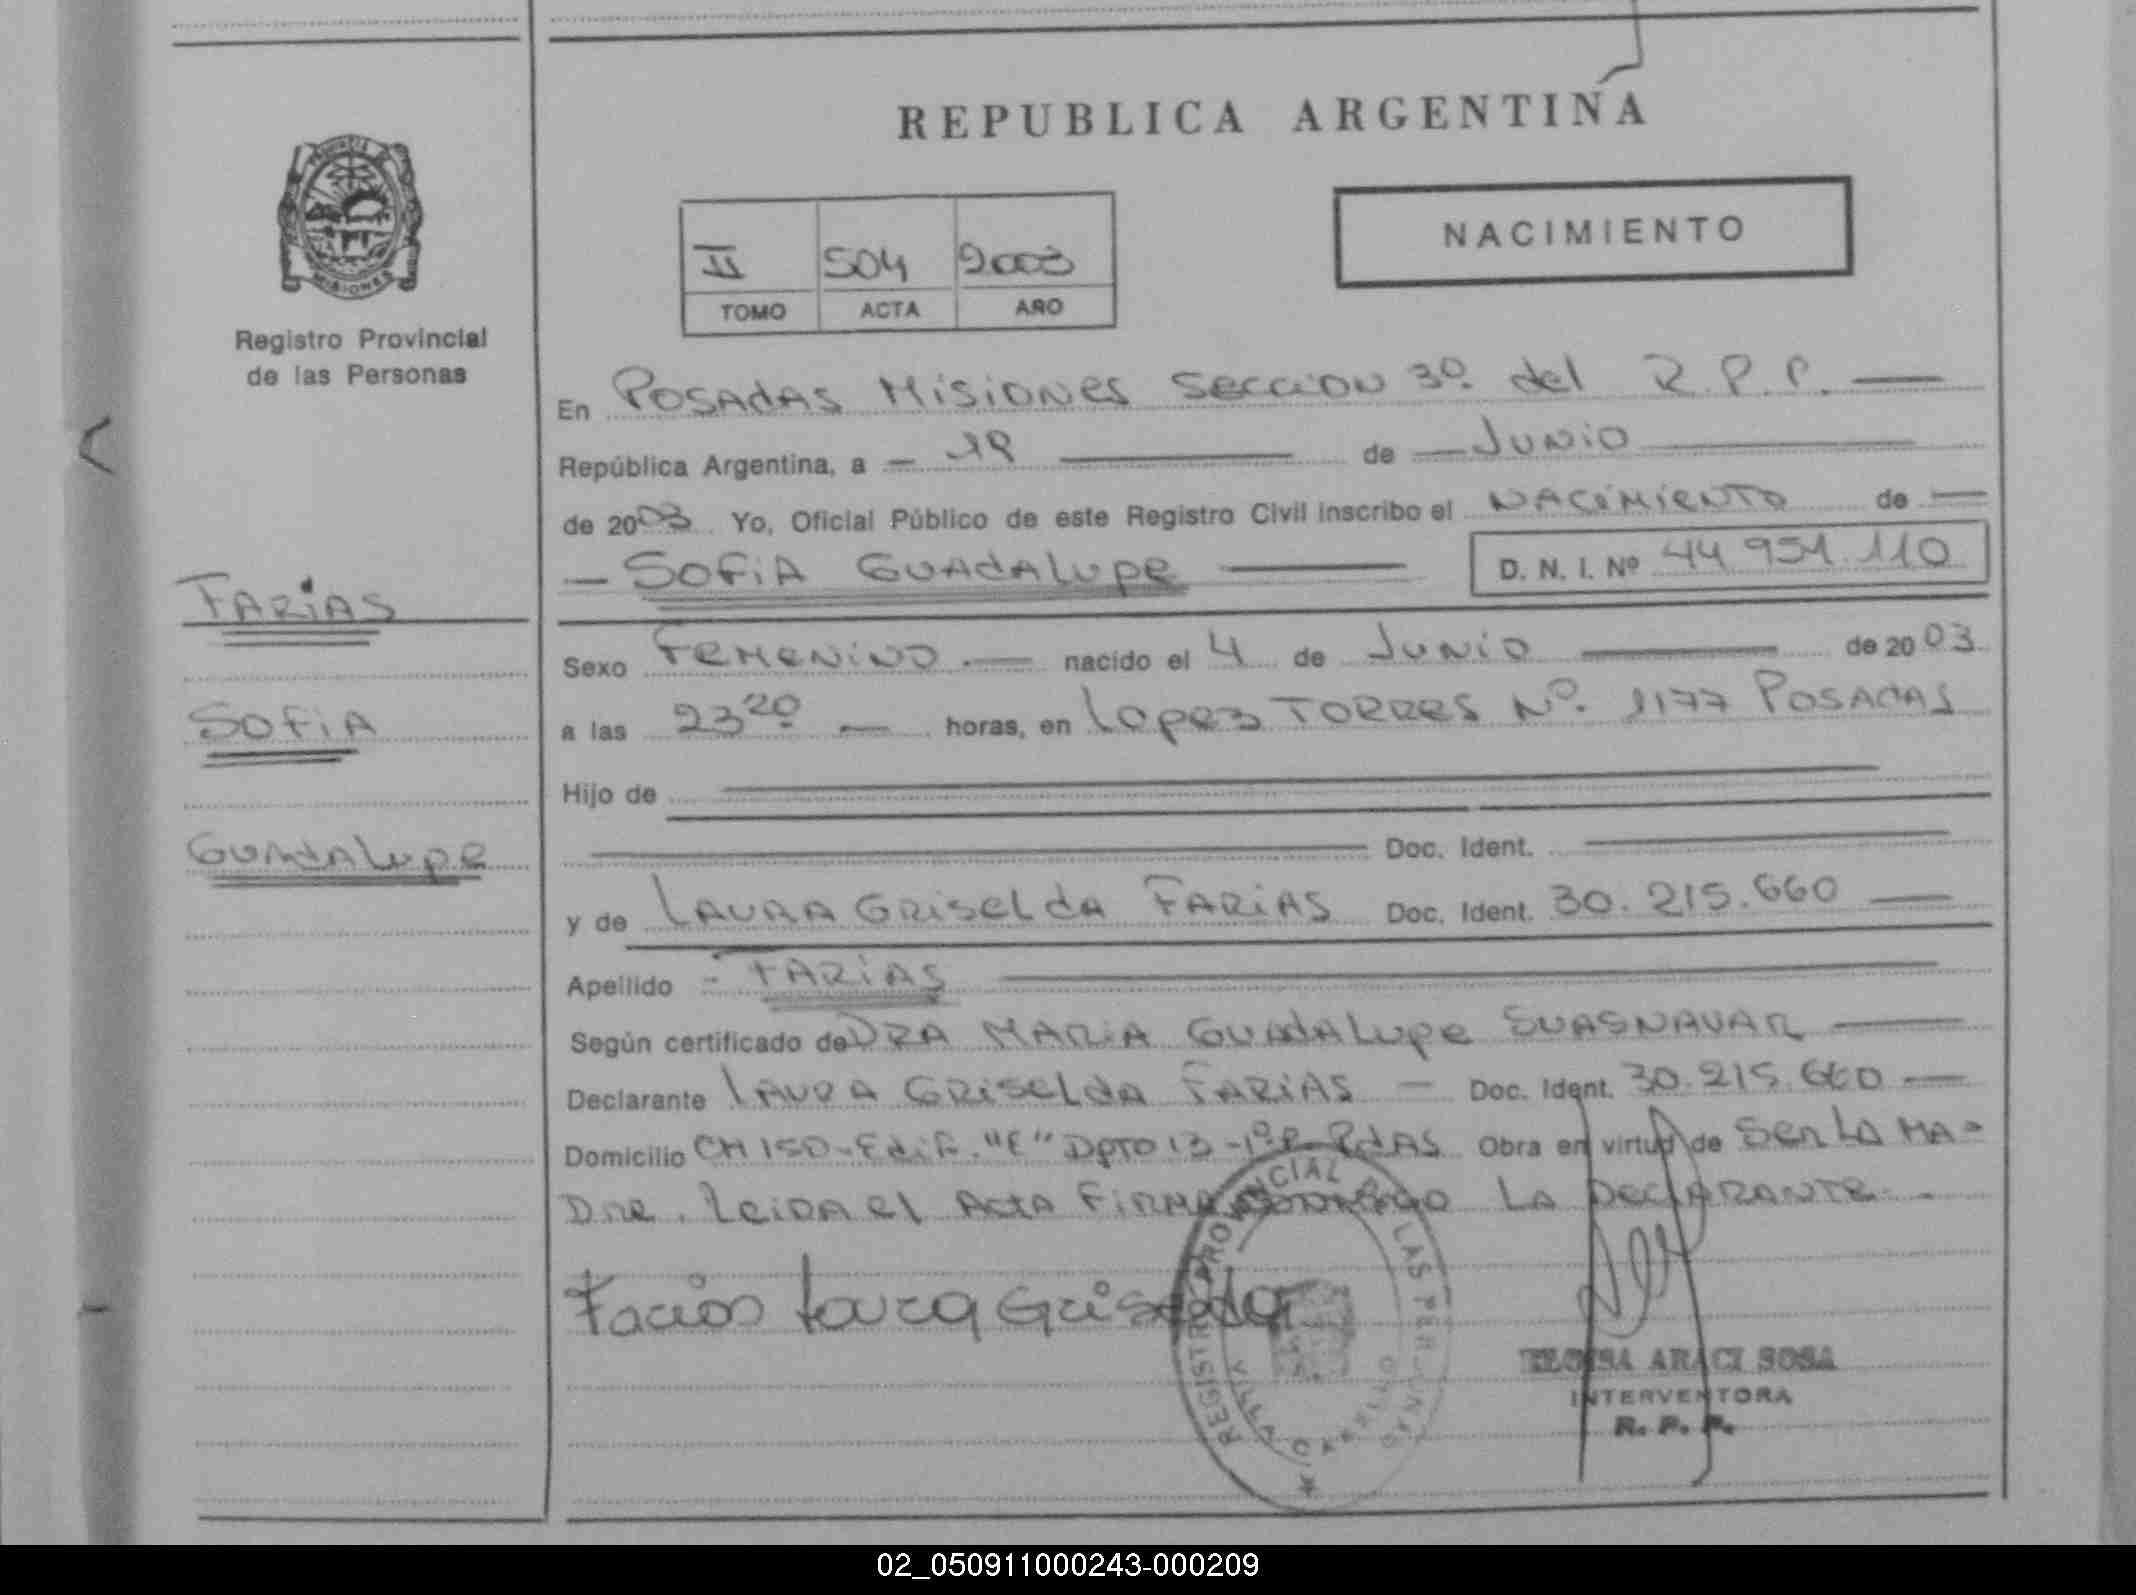 REPUBLICA ARGENTINA
NACIMIENTO
II 504 2003
TOMO ACTA AÑO
PROVINCIA DE
MISIONES
Registro Provincial
de las Personas
FARIAS
SOFIA
GUADALUPE
En POSADAS MISIONES SECCION 3º del R.P.P.
República Argentina, a - 18 de JUNIO
de 2003 Yo, Oficial Público de este Registro Civil inscribo el NACIMIENTO de
SOFIA GUADALUPE D. N. I. Nº 44 951.110
Sexo FEMENINO.- nacido el 4 de JUNIO de 2003
a las 23 20 horas, en Lopez TORRES Nº. 1177 POSADAS
Hijo de
Doc. Ident.
y de LAURA GRISELdA FARIAS Doc. Ident. 30.215.660
Apellido - FARIAS
Según certificado de DRA MARIA GUADALUPE SUASNAVAR
Declarante LAURA GRISELdA FARIAS - Doc. Ident. 30.215.660
Domicilio CH 150-Edif. "E" DPTO 13-1º P-PdAS Obra en virtud de Ser LA MA-
Dre. Leida el ACTA FIRMA CONMIGO LA DECLARANTE.
Farias Laura Griselda
REGISTRO PROVINCIAL DE LAS PERSONAS
VILLA CABELLO
ELOISA ARACI SOSA
INTERVENTORA
R. P. P.
02_050911000243-000209